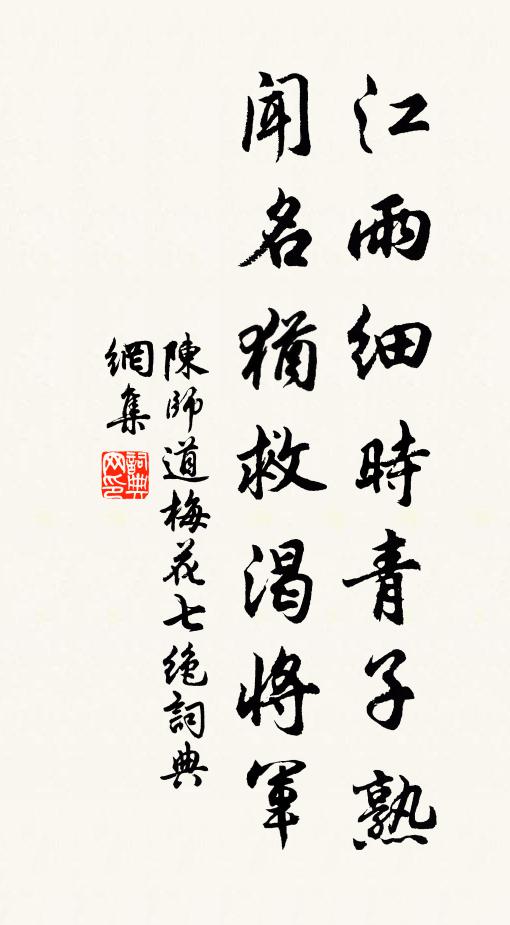 江雨細時青子熟
聞名猶救渴將軍
陳師道梅花七絶詞典
網集
詞典
网印